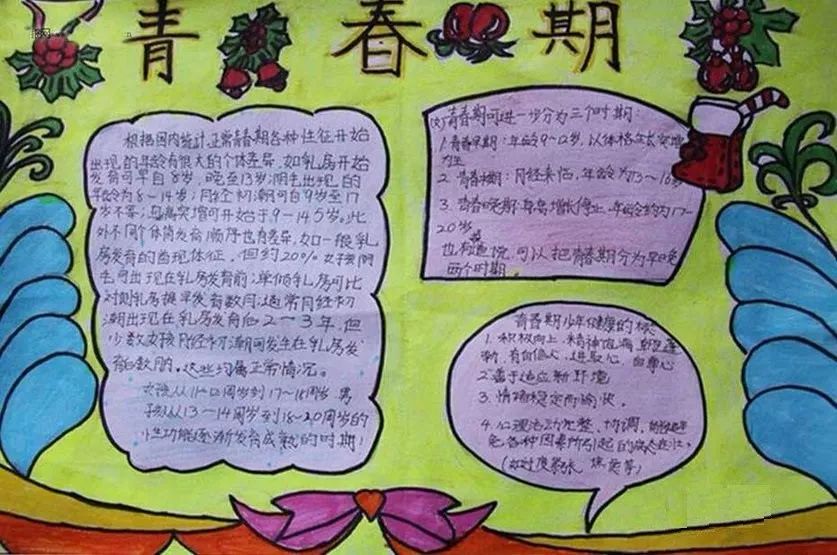 青春期
根据国内统计正常青春期各种性征开始
出现的年龄有很大的个体差异,如乳房开始
发育可早自8岁,晚至13岁;阴毛出现的
年龄为8-14岁;月经初潮可自9岁至17
岁不等;身高突增可开始于9-14.5岁。此
外不同个体间发育顺序也有差异,如一般乳
房发育的首现体征,但约200%女孩阴
毛可出现在乳房发育前;单侧乳房可比
对侧乳房提早发育数月;通常月经初
潮出现在乳房发育后2-3年,但
少数女孩月经初潮可发生在乳房发
育后数月。这些均属正常情况。
女孩从11-12周岁到17-18周岁,男
孩从13-14周岁到18-20周岁的
性功能逐渐发育成熟的时期!
青春期可进一步分为三个时期:
1.青春早期:年龄9-12岁,以体格生长突增
为主
2.青春中期:月经来临,年龄为13-16岁
3.青春晚期:身高增长停止,年龄约为17-
20岁
也有 可以把青春期分为早晚
两个时期.
青春期少年健康的标
1.积极向上、精神饱满、朝气蓬
勃、有自信心、进取心、自尊心
2.善于适应新环境
3.情绪稳定而愉快。
4.心理活动完整、协调、
免各种因素所引起的病态
(如过度紧张、焦虑等)